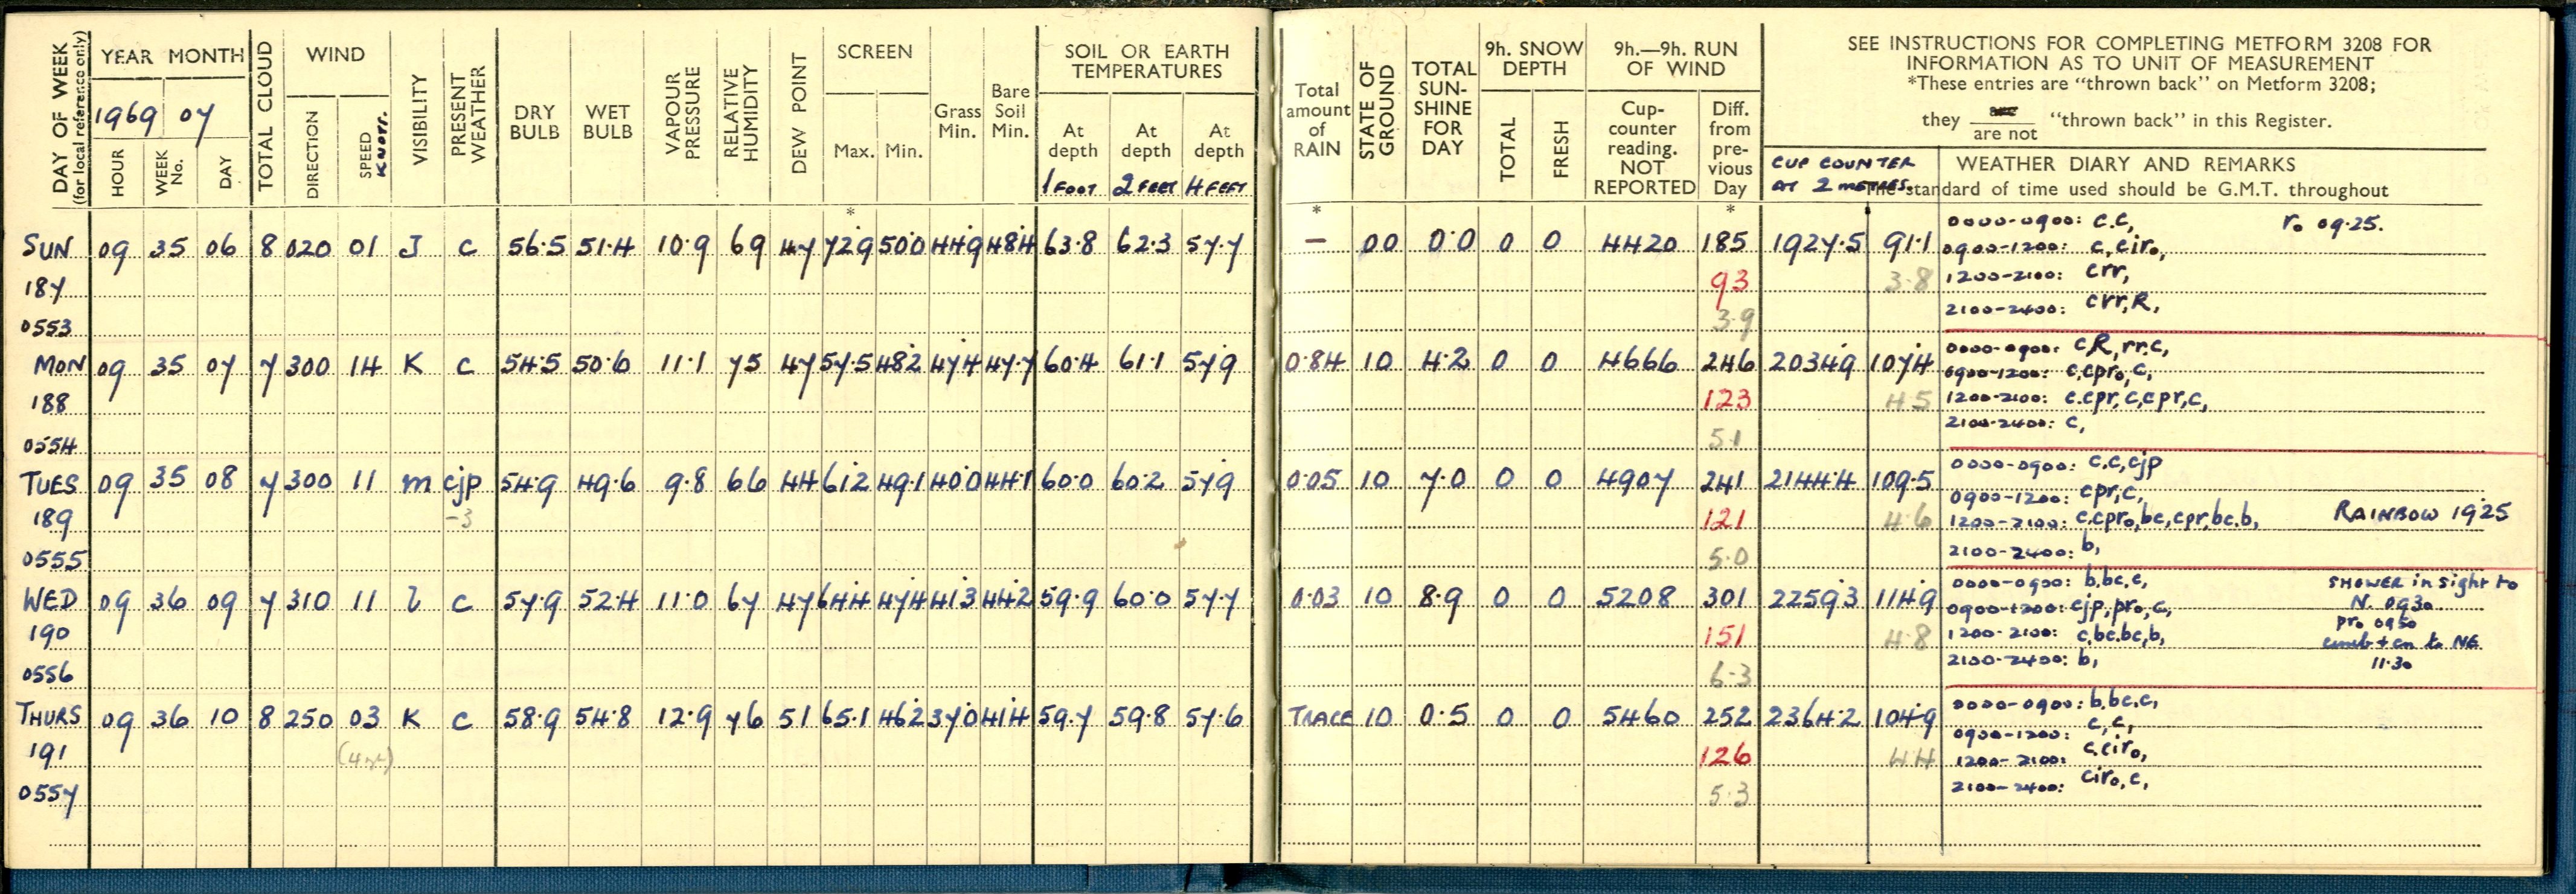 DAY OF WEEK (for local reference only) YEAR MONTH TOTAL CLOUD WIND VISIBILITY PRESENT WEATHER DRY BULB WET BULB VAPOUR PRESSURE RELATIVE HUMIDITY DEW POINT SCREEN Grass Min. Bare Soil Min. SOIL OR EARTH TEMPERATURES
1969 07
HOUR WEEK No. DAY DIRECTION SPEED KNOTS. Max. Min. At depth At depth At depth
1 FOOT 2 FEET 4 FEET
*
SUN 09 35 06 8 020 01 J c 56.5 51.4 10.9 69 47 72.9 50.0 44.9 48.4 63.8 62.3 57.7
187
0553
MON 09 35 07 7 300 14 K c 54.5 50.6 11.1 75 47 57.5 48.2 47.4 47.7 60.4 61.1 57.9
188
0554
TUES 09 35 08 7 300 11 m cjp 54.9 49.6 9.8 66 44 61.2 49.1 40.0 44.1 60.0 60.2 57.9
189 -3
0555
WED 09 36 09 7 310 11 l c 57.9 52.4 11.0 67 47 64.4 47.4 41.3 44.2 59.9 60.0 57.7
190
0556
THURS 09 36 10 8 250 03 K c 58.9 54.8 12.9 76 51 65.1 46.2 37.0 41.4 59.7 59.8 57.6
191
0557
Total amount of RAIN STATE OF GROUND TOTAL SUN- SHINE FOR DAY 9h. SNOW DEPTH 9h.—9h. RUN OF WIND
TOTAL FRESH Cup- counter reading. NOT REPORTED Diff. from pre- vious Day
SEE INSTRUCTIONS FOR COMPLETING METFORM 3208 FOR
INFORMATION AS TO UNIT OF MEASUREMENT
*These entries are "thrown back" on Metform 3208;
they are / are not "thrown back" in this Register.
CUP COUNTER AT 2 METRES.
WEATHER DIARY AND REMARKS
The standard of time used should be G.M.T. throughout
* *
— 00 0.0 0 0 4420 185 1927.5 91.1 0000-0900: c.c, r₀ 09.25.
0900-1200: c,cir₀,
93 3.8 1200-2100: crr,
3.9 2100-2400: crr,R,
0.84 10 4.2 0 0 4666 246 2034.9 107.4 0000-0900: cR,rr.c,
0900-1200: c.cpr₀,c,
123 4.5 1200-2100: c.cpr,c,cpr,c,
5.1 2100-2400: c,
0.05 10 7.0 0 0 4907 241 2144.4 109.5 0000-0900: c.c,cjp
0900-1200: cpr,c,
121 4.6 1200-2100: c.cpr₀,bc,cpr,bc.b, RAINBOW 1925
5.0 2100-2400: b,
0.03 10 8.9 0 0 5208 301 2259.3 114.9 0000-0900: b.bc.c, SHOWER in sight to N. 0930
0900-1200: cjp,pr₀,c, pr₀ 0950
151 4.8 1200-2100: c,bc.bc,b, cumb + cn to NE
6.3 2100-2400: b, 11.30
TRACE 10 0.5 0 0 5460 252 2364.2 104.9 0000-0900: b,bc.c,
0900-1200: c,c,
126 4.4 1200-2100: c.cir₀,
5.3 2100-2400: cir₀,c,